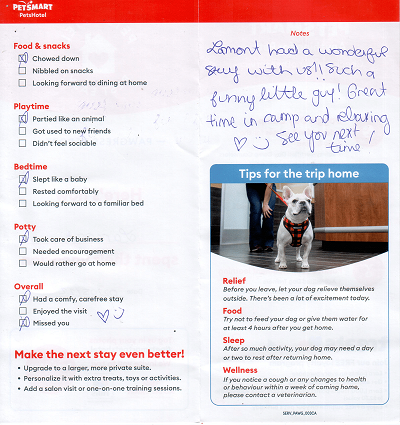 PETSMART
PetsHotel
Food & snacks
Chowed down
Nibbled on snacks
Looking forward to dining at home
Playtime
Partied like an animal
Got used to new friends
Didn't feel sociable
Bedtime
Slept like a baby
Rested comfortably
Looking forward to a familiar bed
Potty
Took care of business
Needed encouragement
Would rather go at home
Overall
Had a comfy, carefree stay
Enjoyed the visit
Missed you
Make the next stay even better!
• Upgrade to a larger, more private suite.
• Personalize it with extra treats, toys or activities.
• Add a salon visit or one-on-one training sessions.
Notes
Lamont had a wonderful
stay with us!! Such a
funny little guy! Great
time in camp and
See you next
time
Tips for the trip home
Relief
Before you leave, let your dog relieve themselves
outside. There's been a lot of excitement today.
Food
Try not to feed your dog or give them water for
at least 4 hours after you get home.
Sleep
After so much activity, your dog may need a day
or two to rest after returning home.
Wellness
If you notice a cough or any changes to health
or behaviour within a week of coming home,
please contact a veterinarian.
SERV_PAWG_003CA